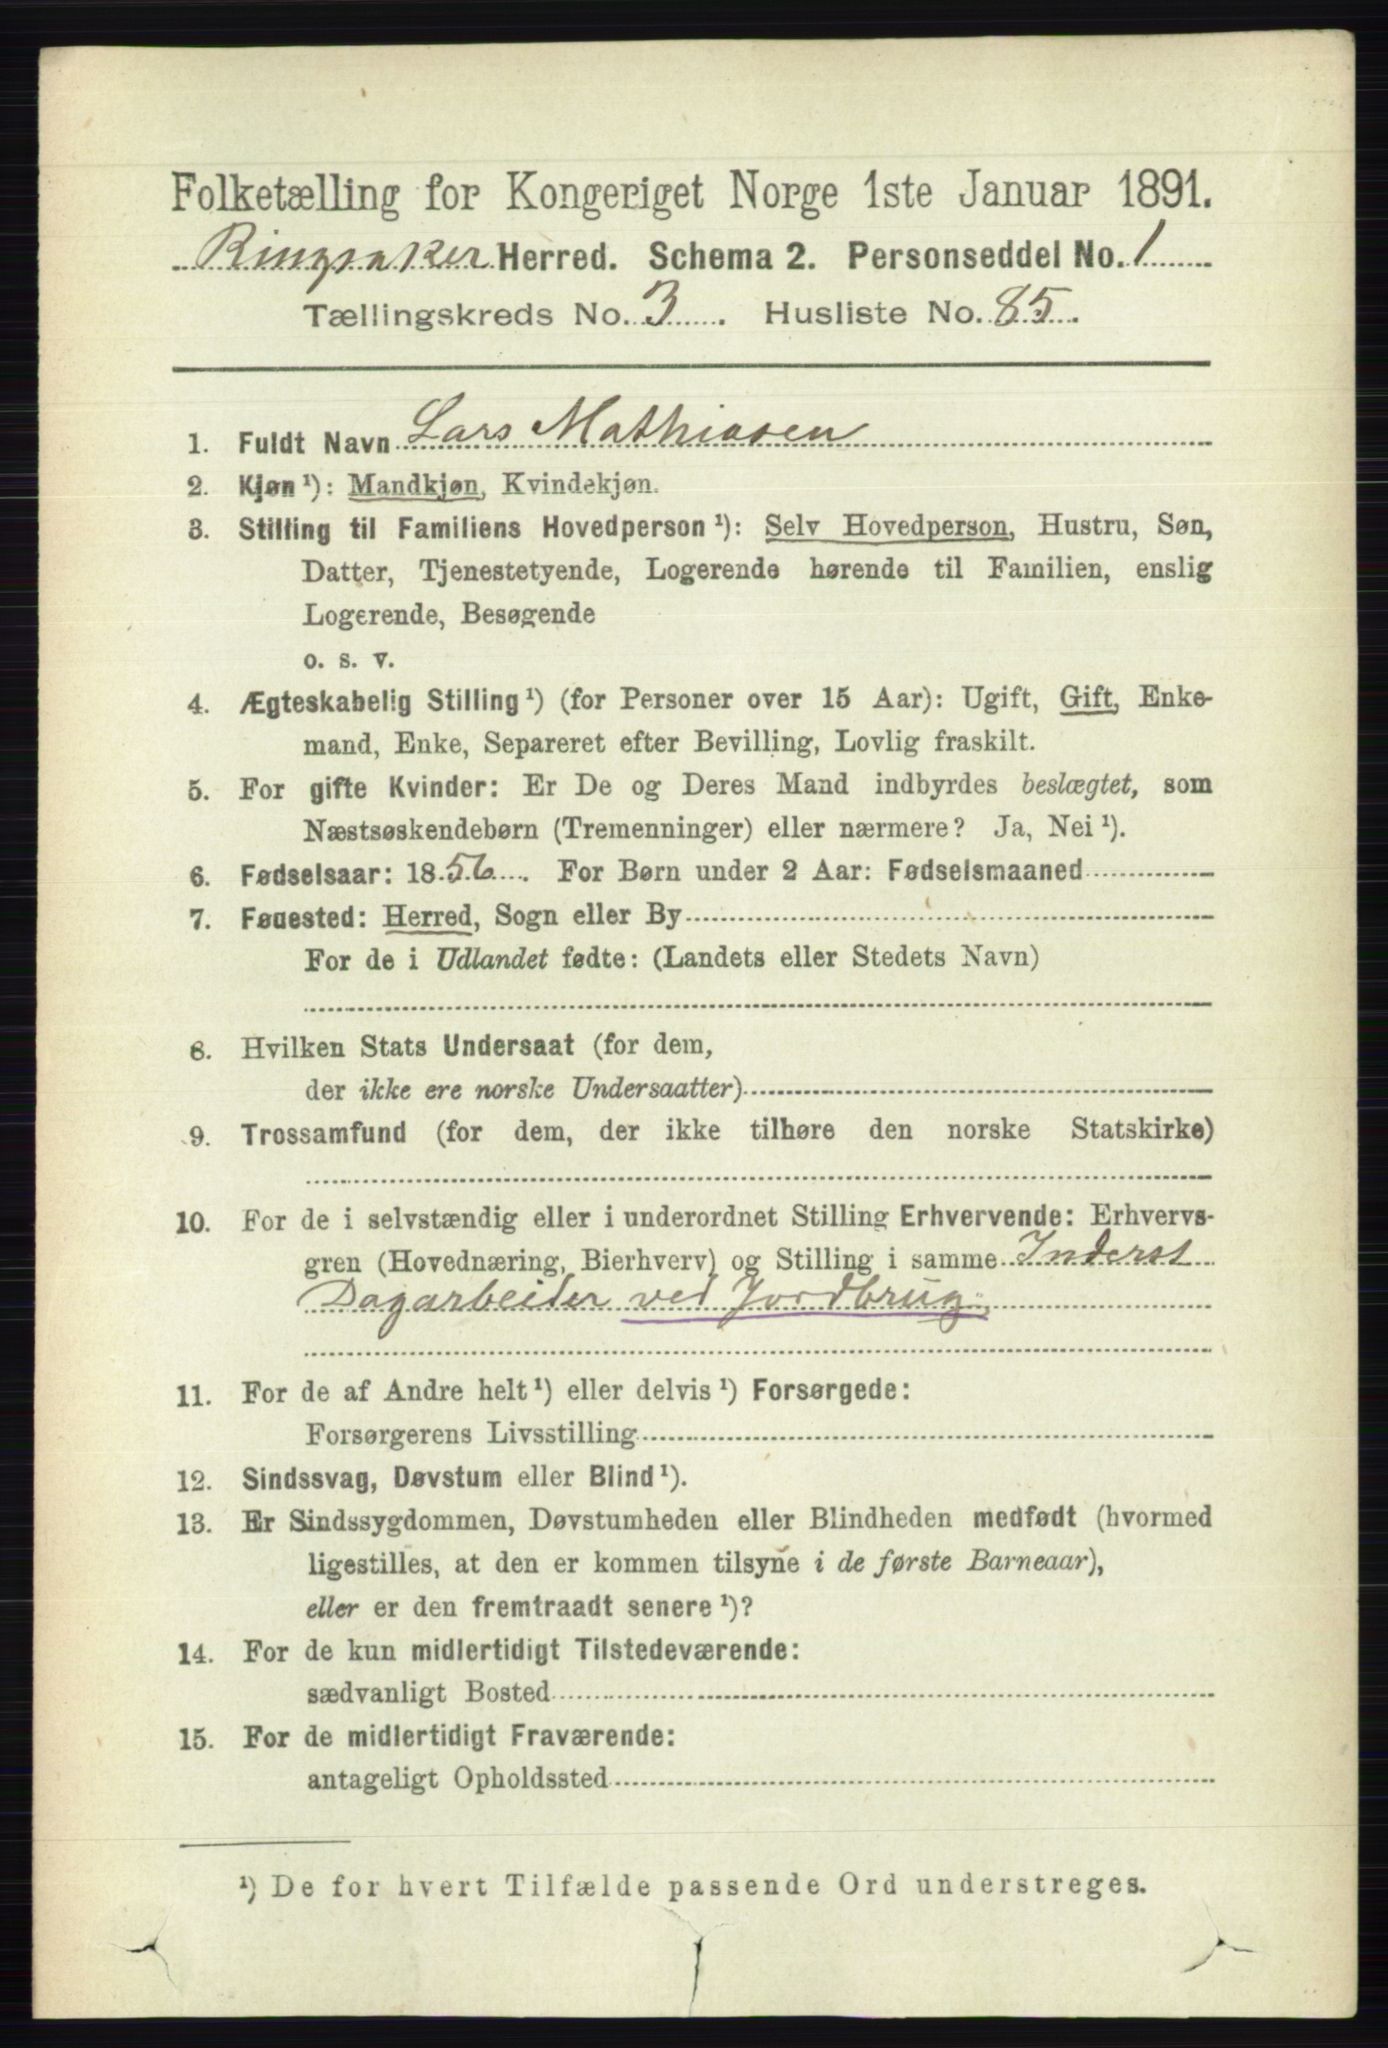 Folketælling for Kongeriget Norge 1ste Januar 1891.
Ringsaker Herred. Schema 2. Personseddel No. 1
Tællingskreds No. 3. Husliste No. 85.
1. Fuldt Navn Lars Mathiasen
2. Kjøn ¹): Mandkjøn, Kvindekjøn.
3. Stilling til Familiens Hovedperson ¹): Selv Hovedperson, Hustru, Søn,
Datter, Tjenestetyende, Logerende hørende til Familien, enslig
Logerende, Besøgende
o. s. v.
4. Ægteskabelig Stilling ¹) (for Personer over 15 Aar): Ugift, Gift, Enke-
mand, Enke, Separeret efter Bevilling, Lovlig fraskilt.
5. For gifte Kvinder: Er De og Deres Mand indbyrdes beslægtet, som
Næstsøskendebørn (Tremenninger) eller nærmere? Ja, Nei ¹).
6. Fødselsaar: 1856. For Børn under 2 Aar: Fødselsmaaned
7. Fødested: Herred, Sogn eller By
For de i Udlandet fødte: (Landets eller Stedets Navn)
8. Hvilken Stats Undersaat (for dem,
der ikke ere norske Undersaatter)
9. Trossamfund (for dem, der ikke tilhøre den norske Statskirke)
10. For de i selvstændig eller i underordnet Stilling Erhvervende: Erhvervs-
gren (Hovednæring, Bierhverv) og Stilling i samme Inderst
Dagarbeider ved Jordbrug
11. For de af Andre helt ¹) eller delvis ¹) Forsørgede:
Forsørgerens Livsstilling
12. Sindssvag, Døvstum eller Blind ¹).
13. Er Sindssygdommen, Døvstumheden eller Blindheden medfødt (hvormed
ligestilles, at den er kommen tilsyne i de første Barneaar),
eller er den fremtraadt senere ¹)?
14. For de kun midlertidigt Tilstedeværende:
sædvanligt Bosted
15. For de midlertidigt Fraværende:
antageligt Opholdssted
¹) De for hvert Tilfælde passende Ord understreges.